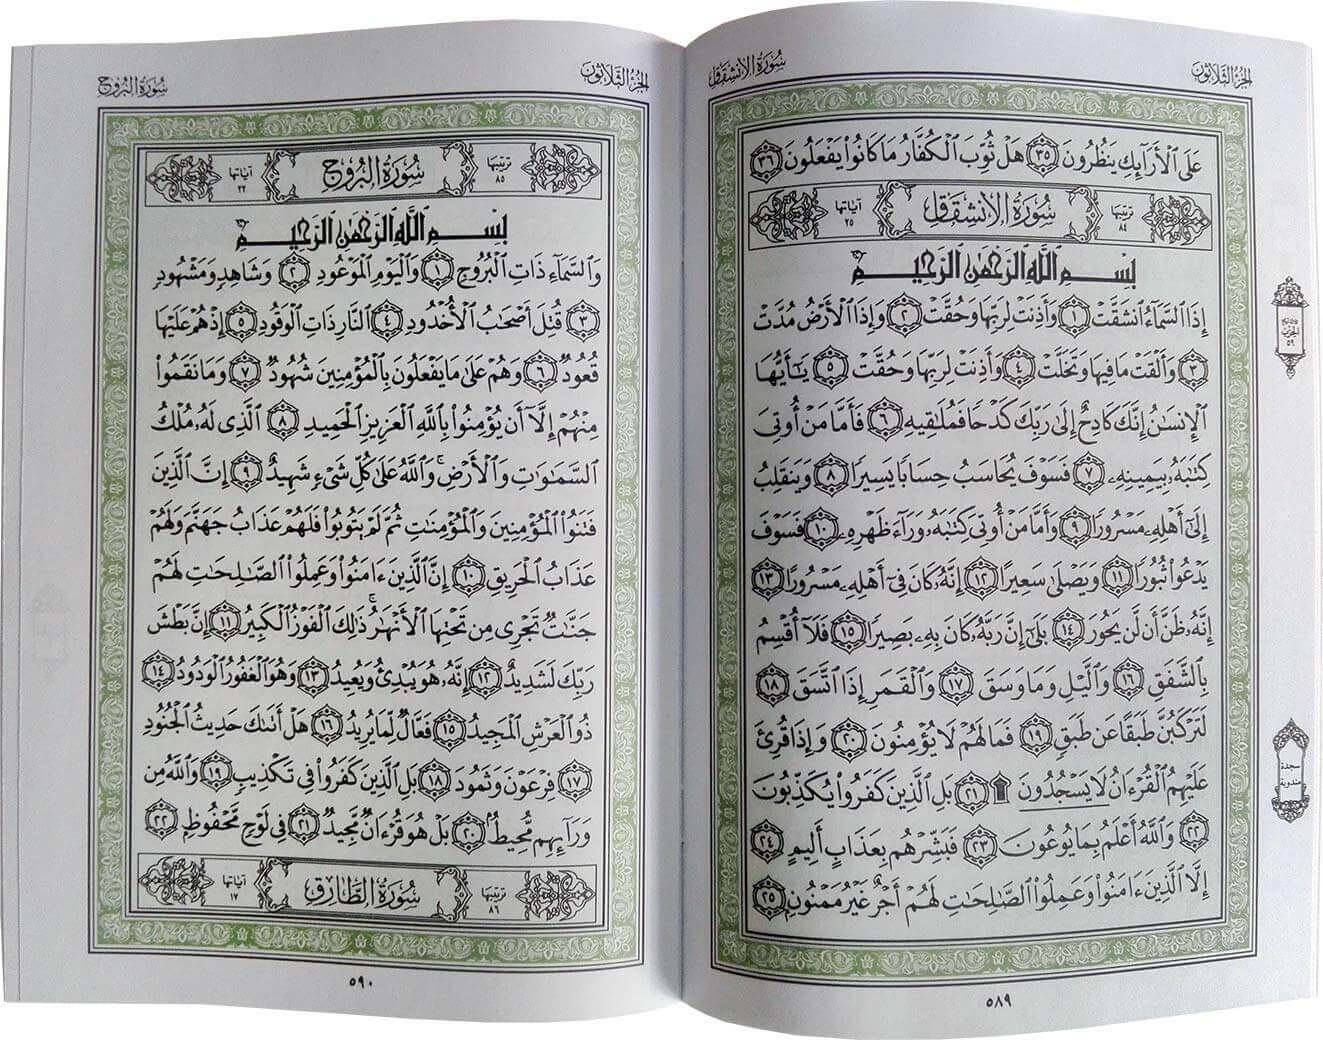 الجزء الثلاثون
سورة الانشقاق
عَلَى ٱلْأَرَآئِكِ يَنظُرُونَ ٣٥ هَلْ ثُوِّبَ ٱلْكُفَّارُ مَا كَانُوا۟ يَفْعَلُونَ ٣٦
ترتيبها ٨٤ سُورَةُ الانْشِقَاقِ آياتها ٢٥
بِسْمِ ٱللَّهِ ٱلرَّحْمَٰنِ ٱلرَّحِيمِ
إِذَا ٱلسَّمَآءُ ٱنشَقَّتْ ١ وَأَذِنَتْ لِرَبِّهَا وَحُقَّتْ ٢ وَإِذَا ٱلْأَرْضُ مُدَّتْ
٣ وَأَلْقَتْ مَا فِيهَا وَتَخَلَّتْ ٤ وَأَذِنَتْ لِرَبِّهَا وَحُقَّتْ ٥ يَٰٓأَيُّهَا
ٱلْإِنسَٰنُ إِنَّكَ كَادِحٌ إِلَىٰ رَبِّكَ كَدْحًا فَمُلَٰقِيهِ ٦ فَأَمَّا مَنْ أُوتِىَ
كِتَٰبَهُۥ بِيَمِينِهِۦ ٧ فَسَوْفَ يُحَاسَبُ حِسَابًا يَسِيرًا ٨ وَيَنقَلِبُ
إِلَىٰٓ أَهْلِهِۦ مَسْرُورًا ٩ وَأَمَّا مَنْ أُوتِىَ كِتَٰبَهُۥ وَرَآءَ ظَهْرِهِۦ ١٠ فَسَوْفَ
يَدْعُوا۟ ثُبُورًا ١١ وَيَصْلَىٰ سَعِيرًا ١٢ إِنَّهُۥ كَانَ فِىٓ أَهْلِهِۦ مَسْرُورًا ١٣
إِنَّهُۥ ظَنَّ أَن لَّن يَحُورَ ١٤ بَلَىٰٓ إِنَّ رَبَّهُۥ كَانَ بِهِۦ بَصِيرًا ١٥ فَلَآ أُقْسِمُ
بِٱلشَّفَقِ ١٦ وَٱلَّيْلِ وَمَا وَسَقَ ١٧ وَٱلْقَمَرِ إِذَا ٱتَّسَقَ ١٨
لَتَرْكَبُنَّ طَبَقًا عَن طَبَقٍ ١٩ فَمَا لَهُمْ لَا يُؤْمِنُونَ ٢٠ وَإِذَا قُرِئَ
عَلَيْهِمُ ٱلْقُرْءَانُ لَا يَسْجُدُونَ ۩ ٢١ بَلِ ٱلَّذِينَ كَفَرُوا۟ يُكَذِّبُونَ
٢٢ وَٱللَّهُ أَعْلَمُ بِمَا يُوعُونَ ٢٣ فَبَشِّرْهُم بِعَذَابٍ أَلِيمٍ ٢٤
إِلَّا ٱلَّذِينَ ءَامَنُوا۟ وَعَمِلُوا۟ ٱلصَّٰلِحَٰتِ لَهُمْ أَجْرٌ غَيْرُ مَمْنُونٍۭ ٢٥
الحزب
٥٩
سجدة
مندوبة
٥٨٩
الجزء الثلاثون
سورة البروج
ترتيبها ٨٥ سُورَةُ البُرُوجِ آياتها ٢٢
بِسْمِ ٱللَّهِ ٱلرَّحْمَٰنِ ٱلرَّحِيمِ
وَٱلسَّمَآءِ ذَاتِ ٱلْبُرُوجِ ١ وَٱلْيَوْمِ ٱلْمَوْعُودِ ٢ وَشَاهِدٍ وَمَشْهُودٍ
٣ قُتِلَ أَصْحَٰبُ ٱلْأُخْدُودِ ٤ ٱلنَّارِ ذَاتِ ٱلْوَقُودِ ٥ إِذْ هُمْ عَلَيْهَا
قُعُودٌ ٦ وَهُمْ عَلَىٰ مَا يَفْعَلُونَ بِٱلْمُؤْمِنِينَ شُهُودٌ ٧ وَمَا نَقَمُوا۟
مِنْهُمْ إِلَّآ أَن يُؤْمِنُوا۟ بِٱللَّهِ ٱلْعَزِيزِ ٱلْحَمِيدِ ٨ ٱلَّذِى لَهُۥ مُلْكُ
ٱلسَّمَٰوَٰتِ وَٱلْأَرْضِ ۚ وَٱللَّهُ عَلَىٰ كُلِّ شَىْءٍ شَهِيدٌ ٩ إِنَّ ٱلَّذِينَ
فَتَنُوا۟ ٱلْمُؤْمِنِينَ وَٱلْمُؤْمِنَٰتِ ثُمَّ لَمْ يَتُوبُوا۟ فَلَهُمْ عَذَابُ جَهَنَّمَ وَلَهُمْ
عَذَابُ ٱلْحَرِيقِ ١٠ إِنَّ ٱلَّذِينَ ءَامَنُوا۟ وَعَمِلُوا۟ ٱلصَّٰلِحَٰتِ لَهُمْ
جَنَّٰتٌ تَجْرِى مِن تَحْتِهَا ٱلْأَنْهَٰرُ ۚ ذَٰلِكَ ٱلْفَوْزُ ٱلْكَبِيرُ ١١ إِنَّ بَطْشَ
رَبِّكَ لَشَدِيدٌ ١٢ إِنَّهُۥ هُوَ يُبْدِئُ وَيُعِيدُ ١٣ وَهُوَ ٱلْغَفُورُ ٱلْوَدُودُ ١٤
ذُو ٱلْعَرْشِ ٱلْمَجِيدُ ١٥ فَعَّالٌ لِّمَا يُرِيدُ ١٦ هَلْ أَتَىٰكَ حَدِيثُ ٱلْجُنُودِ
١٧ فِرْعَوْنَ وَثَمُودَ ١٨ بَلِ ٱلَّذِينَ كَفَرُوا۟ فِى تَكْذِيبٍ ١٩ وَٱللَّهُ مِن
وَرَآئِهِم مُّحِيطٌۢ ٢٠ بَلْ هُوَ قُرْءَانٌ مَّجِيدٌ ٢١ فِى لَوْحٍ مَّحْفُوظٍۭ ٢٢
ترتيبها ٨٦ سُورَةُ الطَّارِقِ آياتها ١٧
٥٩٠